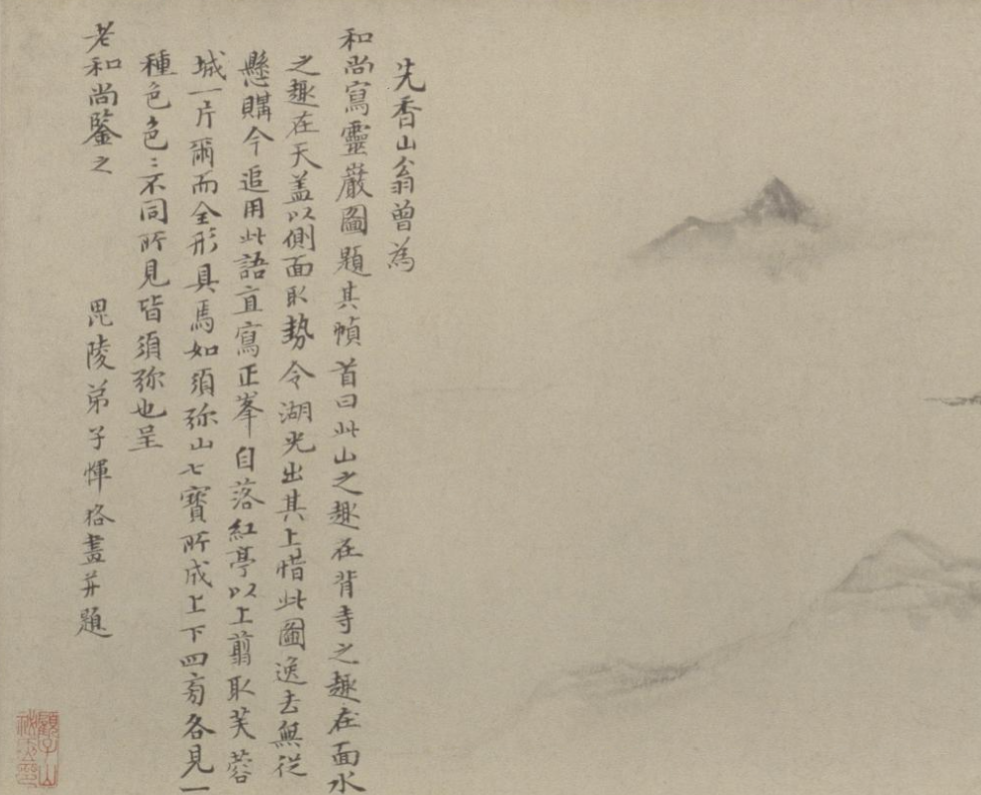 先香山翁曾為
和尚寫靈巖圖題其幀首曰此山之趣在背寺之趣在面水
之趣在天蓋以側面取勢令湖光出其上惜此圖逸去無從
懸購今追用此語直寫正峯自落紅亭以上翦取芙蓉
城一片爾而全形具焉如須弥山七寶所成上下四旁各見一
種色色〻不同所見皆須弥也呈
老和尚鑒之
毘陵弟子惲格畫并題